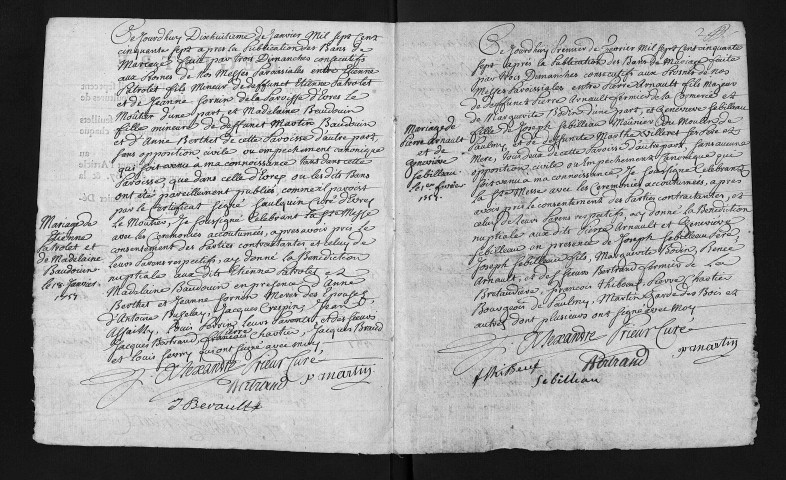 Ce Jourdhuy Dixhuitieme de Janvier Mil Sept Cent
cinquante Sept apres la Publication des Bans de
Mariage faite par Trois Dimanches consecutifs
aux Prones de Nos Messes Paroissiales entre Etienne
fils Mineur de deffunt Etienne
et de Jeanne de la Paroisse d'Eyres le
Moutier d'une part, et Madelaine Baudouin
fille mineure de deffunt Martin Baudouin
et d'Anne Berthet de cette Paroisse d'autre part
sans opposition civile ou empechement canonique
qui soit venu a ma connoissance Tant dans cette
Paroisse que dans celle d'Eyres ou les dits Bans
ont été pareillement publiés, comme il paroist
par le Certificat Signé Curé d'Eyres
le Moutier, Je Soussigné Celebrant la Ste Messe
avec les Ceremonies accoutumées, apres avoir pris le
consentement des Parties contractantes et celuy de
leurs Parens respectifs, ay donné la Benediction
nuptiale aux dits Etienne et
Madelaine Baudouin en presence d'Anne
Berthet et Jeanne Meres des Epoux
d'Antoine Jacques Crespin, Jean
Louis leurs Parens, et des Sieurs
Jacques Bertrand, François Chartier, Jacques
et Louis qui ont signé avec moy
Alexandre Prieur Curé
Bertrand p martin
J Berault
Mariage de
Etienne
et
de Madelaine
Baudouin
le 18 Janvier
1757
2
Ce Jourdhuy Premier de Fevrier Mil Sept Cent cinquante
Sept apres la Publication des Bans de Mariage faite
par Trois Dimanches consecutifs aux Prones de nos
Messes Paroissiales entre Pierre Arnault fils Majeur
de deffunt Pierre Arnault fermier de la
et de Marguerite Bodin d'une part, et Genevieve Sebilleau
fille de Joseph Sebilleau Munier du Moulin de
Paulmy, et de deffunte Marthe ses Pere et
Mere, Tous deux de cette Paroisse d'autre part, sans aucune
opposition civile ou Empechement Canonique qui
soit venu a ma connoissance Je Soussigné Celebrant
la Ste Messe avec les Ceremonies accoutumées, apres
avoir pris le consentement des Parties contractantes, et
celuy de leurs Parens respectifs, ay donné la Benediction
nuptiale aux dits Pierre Arnault et Genevieve
Sebilleau en presence de Joseph Sebilleau Pere,
Joseph Sebilleau fils, Marguerite Bodin, Renée
Arnault, et des Sieurs Bertrand fermier de la
François Thibeuf, Pierre Chartier
Bourgeois de Paulmy, Martin Garde des Bois et
autres dont plusieurs ont signé avec Moy
Alexandre Prieur Curé
f thiBeuf Bertrand p martin
Sebilleau
Mariage de
Pierre Arnault
et de
Genevieve
Sebilleau
le 1er fevrier
1757